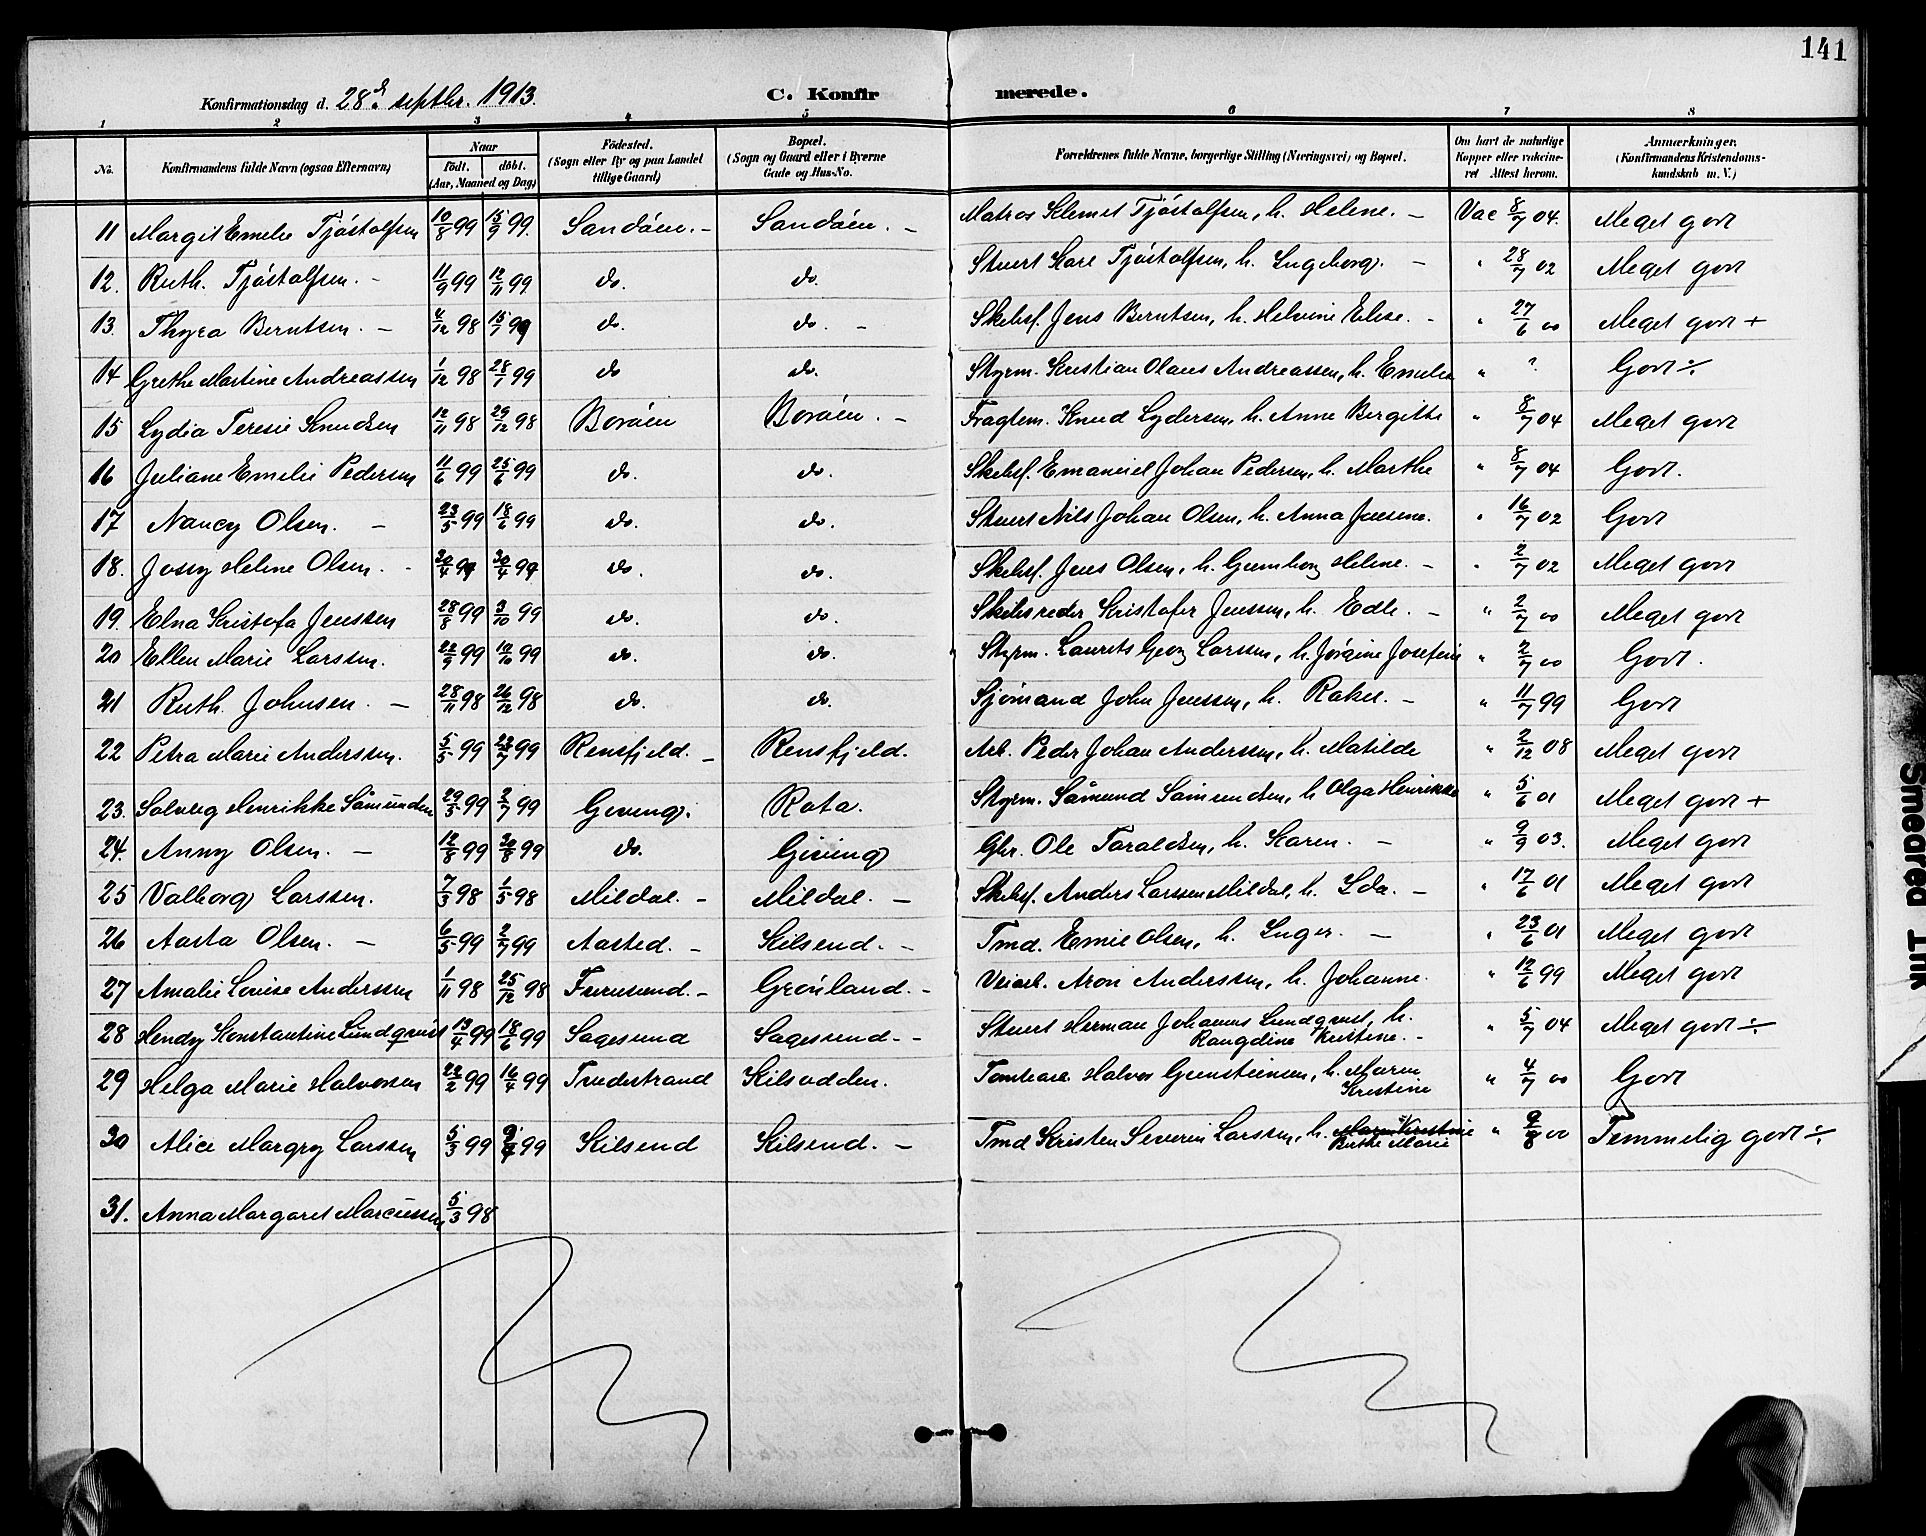 141
Konfirmationsdag d. 28de septbr. 1913.
C. Konfirmerede.
1 2 3 4 5 6 7 8
No. Konfirmandens fulde Navn (ogsaa Efternavn) Naar födt. döbt. (Aar, Maaned og Dag) Födested. (Sogn eller By og paa Landet tillige Gaard) Bopæl. (Sogn og Gaard eller i Byerne Gade og Hus-No. Forældrenes fulde Navne, borgerlige Stilling (Næringsvei) og Bopæl. Om havt de naturlige Kopper eller vakcineret Attest herom. Anmærkninger. (Konfirmandens Kristendomskundskab m. V.)
11 Margit Emelie Tjøstolfsen 10/8 99 15/9 99. Sandøen. - Sandøen. - Matros Klemet Tjøstolfsen, h. Helene. - Vac 8/7 04. Meget godt
12. Ruth Tjøstolfsen. - 11/9 99 12/11 99 do. do. Stuert Kare Tjøstolfsen, h. Ingeborg. - " 28/7 02 Meget godt
13. Thyra Berntsen. - 4/12 98 15/1 99 do. do. - Skibsf. Jens Berntsen, h. Helvine Elise. - " 27/6 00 Meget godt +
14 Grethe Martine Andreassen 1/12 98 28/1 99 do do. Styrm. Kristian Olaus Andreassen, h. Emelie " ? Godt ÷
15 Lydia Teresie Knudsen 12/11 98 29/12 98 Borøen Borøen. - Fragtem. Knud Lydersen, h. Anne Bergitte " 8/7 04 Meget godt
16 Juliane Emelie Pedersen 11/6 99 25/6 99 do. do. Skibsf. Emanuel Johan Pedersen, h. Marthe " 8/7 04 Godt.
17 Nancy Olsen. - 23/5 99 18/6 99 do. do. Stuert Nils Johan Olsen, h. Anna Jensine. " 16/7 02 Godt
18. Jossy Helene Olsen. - 30/4 99 do. do. Skibsf. Jens Olsen, h. Gunborg Helene. - " 2/7 02 Meget godt
19. Elna Kristofa Jenssen 28/8 99 3/10 99 do. do. Skibsreder Kristofer Jenssen, h. Edle. - " 2/7 00 Meget godt
20 Ellen Marie Larssen. 22/9 99 10/10 99 do. do. Styrm. Laurits Georg Larssen, h. Jørgine Josefine " 2/7 00 Godt.
21 Ruth Johnsen. - 28/11 98 26/12 98 do. do. Sjømand John Jenssen, h. Rakel. - " 11/7 99 Godt
22 Petra Marie Anderssen. 5/5 99 23/7 99 Rensfjeld. - Rensfjeld. Arb. Peder Johan Anderssen, h. Matilde " 2/12 08 Meget godt
23. Solveig Henrikke Sämundsen 29/5 99 2/7 99 Goving. Rota. Styrm. Sämund Sämundsen, h Olga Henrikke " 5/6 01 Meget godt +
24. Anny Olsen. - 12/8 99 20/8 99 do. Giving Gbr. Ole Taraldsen, h. Karen. - " 9/9 03. Meget godt
25 Valborg Larssen. 7/3 98 1/5 98 Mildal. - Mildal. - Skibsf. Anders Larssen Mildal, h. Ida. - " 17/6 01 Meget godt
26 Aasta Olsen. - 6/5 99 2/7 99 Aasted. - Kilsund. - Tmd. Emil Olsen, h. Inger. - " 23/6 01 Meget godt
27 Amalie Louise Anderssen 1/11 98 25/12 98 Furusund. - Grønland. - Veiarb. Aron Anderssen, h. Johanne. " 12/6 99 Meget godt
28 Hendy Konstantine Lundqvist 13/4 99 18/6 99 Sagesund Sagesund. - Stuert Herman Johannes Lundqvist, h. Rangdine Kristine. - " 5/7 04 Meget godt ÷
29 Helga Marie Halvorsen 22/2 99 16/4 99 Tvedestrand Kilsodden. Tomtearb. Halvor Gunsteinsen, h. Maren Kristine " 4/7 00 Godt
30 Alice Margry Larssen 5/3 99 Kilsund Kilsund. - Tmd Kristen Severin Larssen, h. Maren Kristine Birthe Marie " 00 Temmelig godt ÷
31. Anna Margaret Marcussen 5/3 98
Smeared Ink